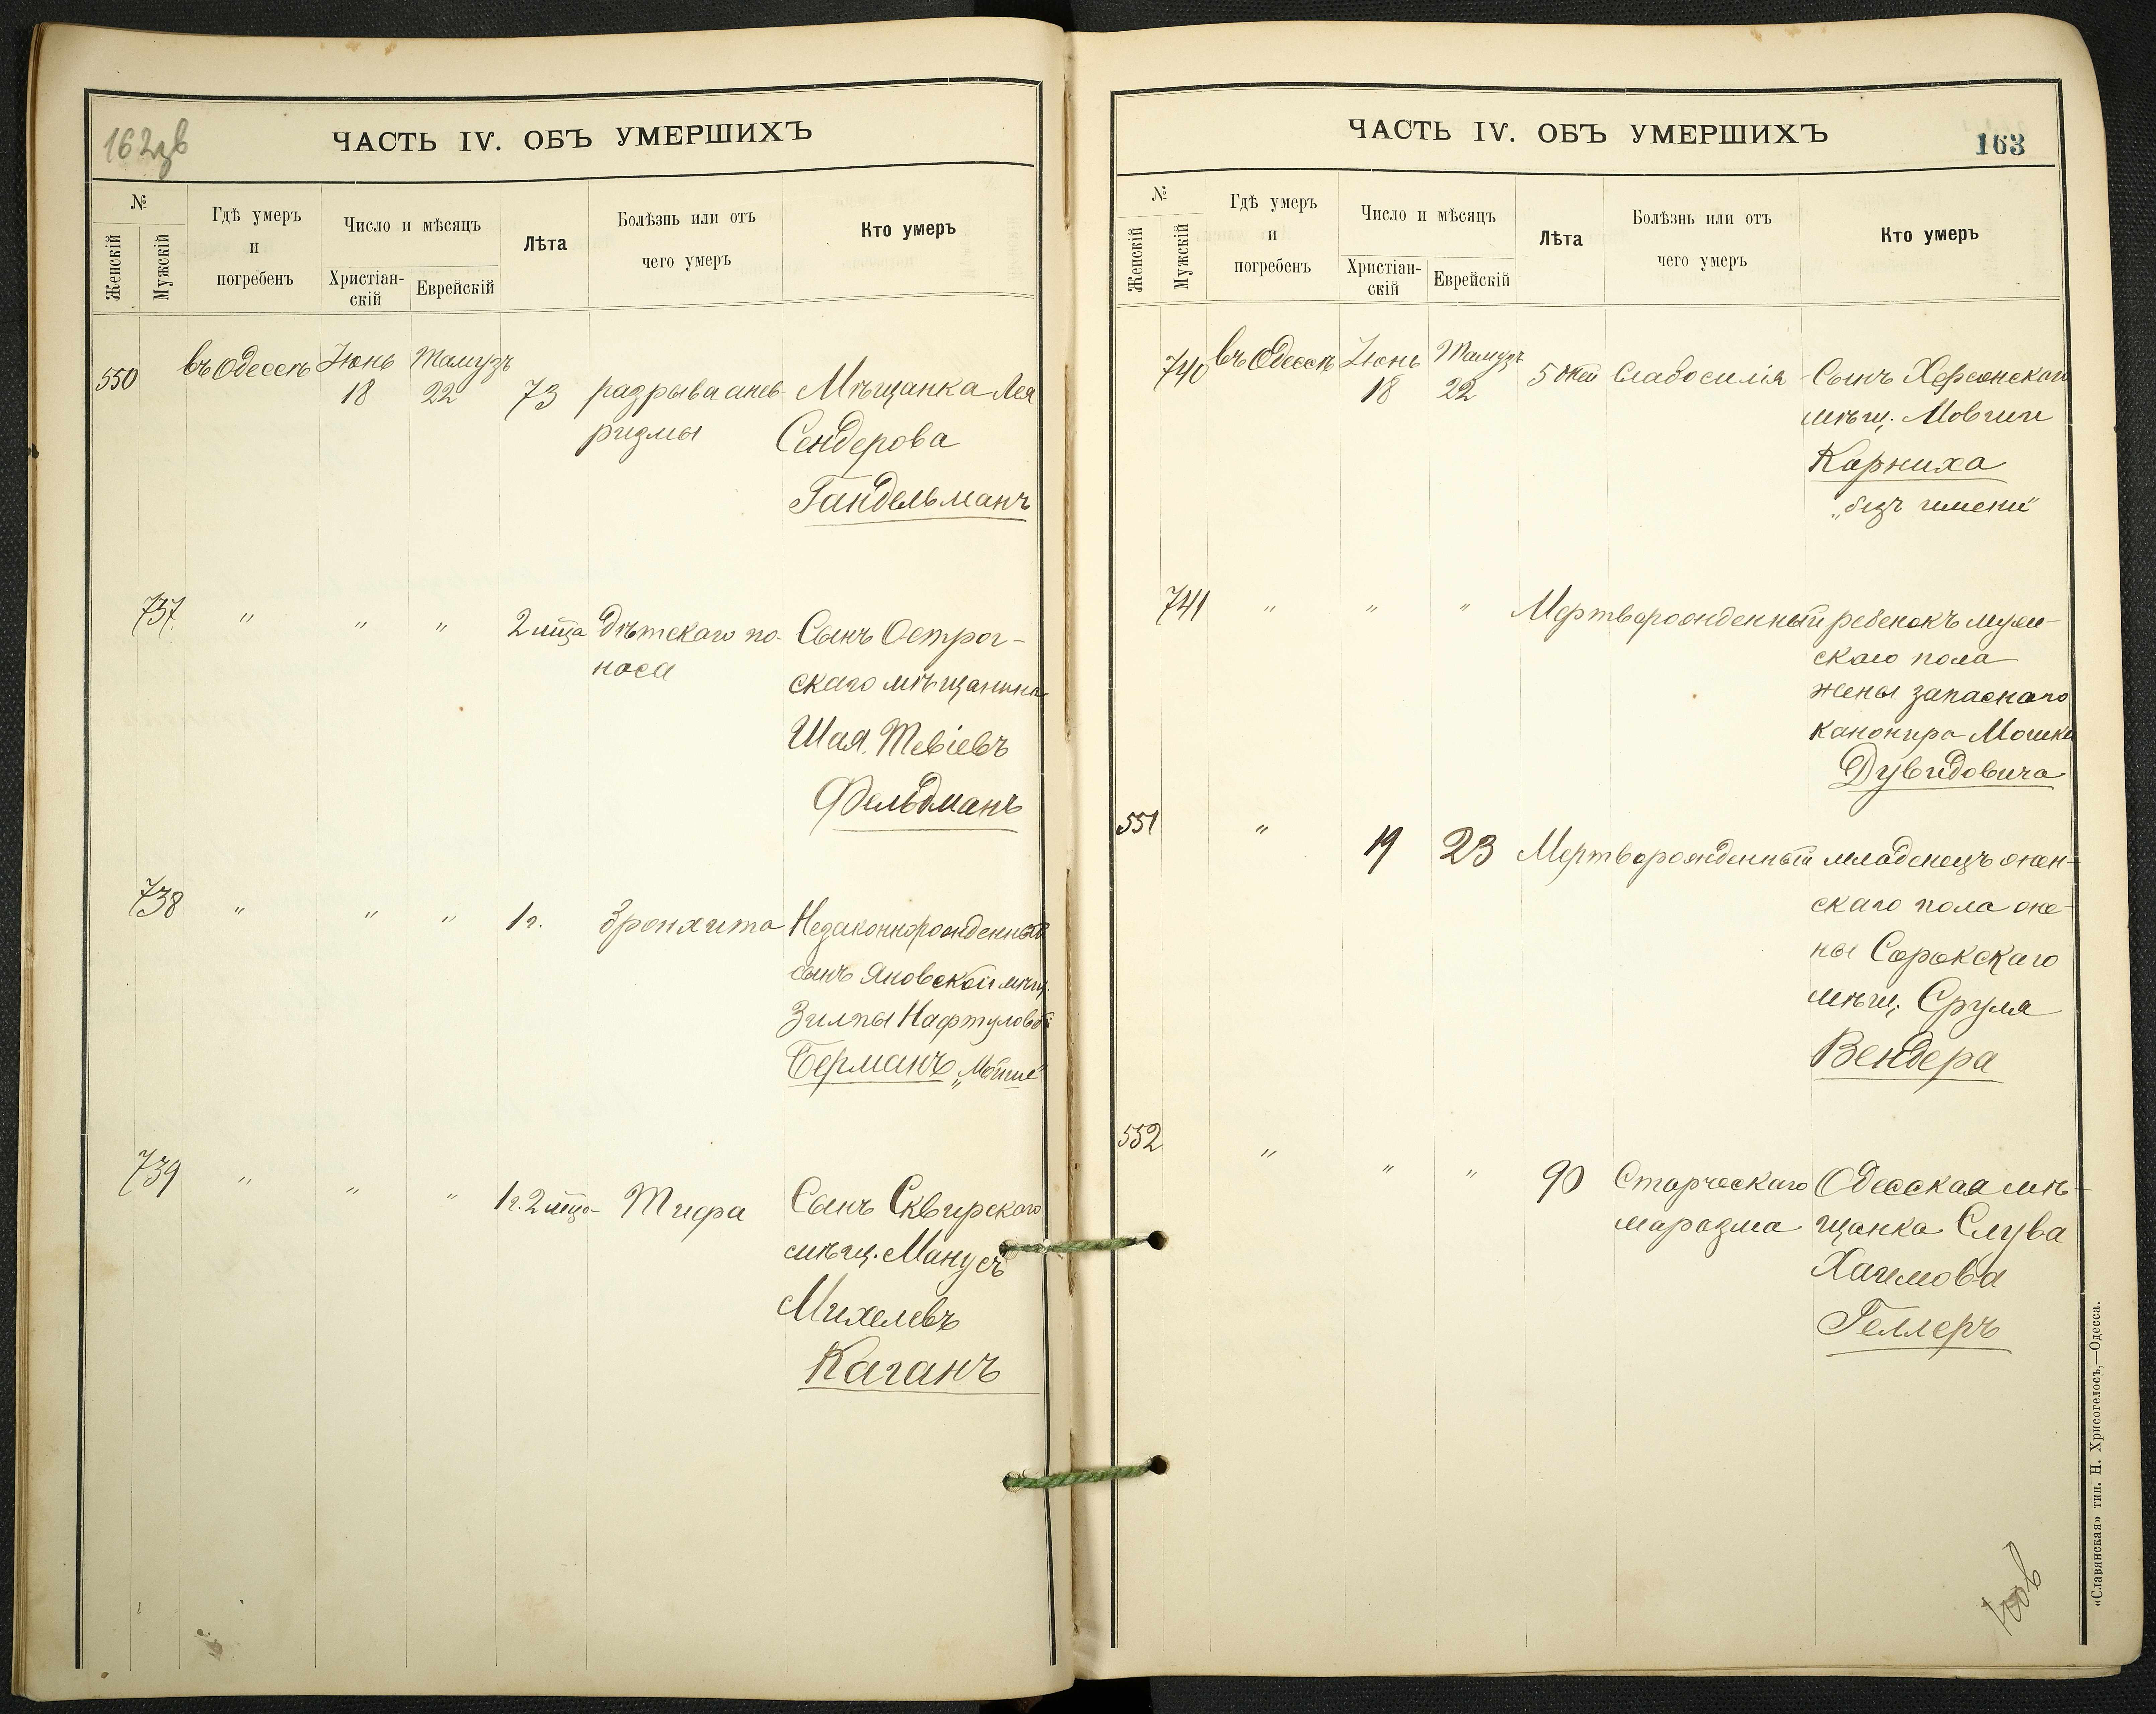 162зв
ЧАСТЬ IV. ОБЪ УМЕРШИХЪ
№
Женскій
Мужскій
Гдѣ умеръ
и
погребенъ
Число и мѣсяцъ
Христіан-
скій
Еврейскій
Лѣта
Болѣзнь или отъ
чего умеръ
Кто умеръ
550 въ Одессѣ Іюнь Тамузъ
18 22 73 разрыва анев- Мѣщанка Лея
ризмы Сендерова
Гандельманъ
737 " " " 2 мѣца дѣтскаго по- Сынъ Острог-
носа скаго мѣщанина
Шая Тевіевъ
Фельдманъ
738 " " " 1 г. Бронхита Незаконнорожденный
сынъ Яновской мѣщ.
Зилпы Нафтуловой
Берманъ „Мойше"
739 " " " 1 г. 2 мѣца Тифа Сынъ Сквирскаго
мѣщ. Манусъ
Михелевъ
Каганъ
ЧАСТЬ IV. ОБЪ УМЕРШИХЪ
163
№
Женскій
Мужскій
Гдѣ умеръ
и
погребенъ
Число и мѣсяцъ
Христіан-
скій
Еврейскій
Лѣта
Болѣзнь или отъ
чего умеръ
Кто умеръ
740 въ Одессѣ Іюнь Тамузъ
18 22 5 дней Слабосилія Сынъ Херсонскаго
мѣщ. Мовши
Корниха
„безъ имени"
741 " " " Мертворожденный ребенокъ муж-
скаго пола
жены запаснаго
канонира Мошка
Дувидовича
551 " 19 23 Мертворожденный младенецъ жен-
скаго пола же-
ны Сорокскаго
мѣщ. Сруля
Вендера
552 " " " 90 Старческаго Одесская мѣ-
маразма щанка Слува
Хаимова
Геллеръ
«Славянская» тип. Н. Хрисогелосъ,—Одесса.